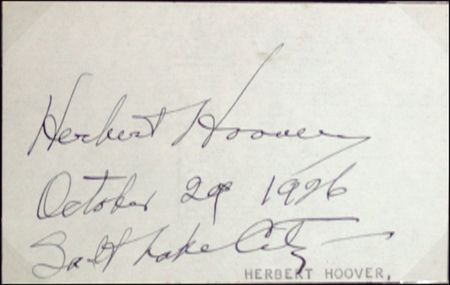 Herbert Hoover
October 29 1926
Salt Lake City
HERBERT HOOVER,